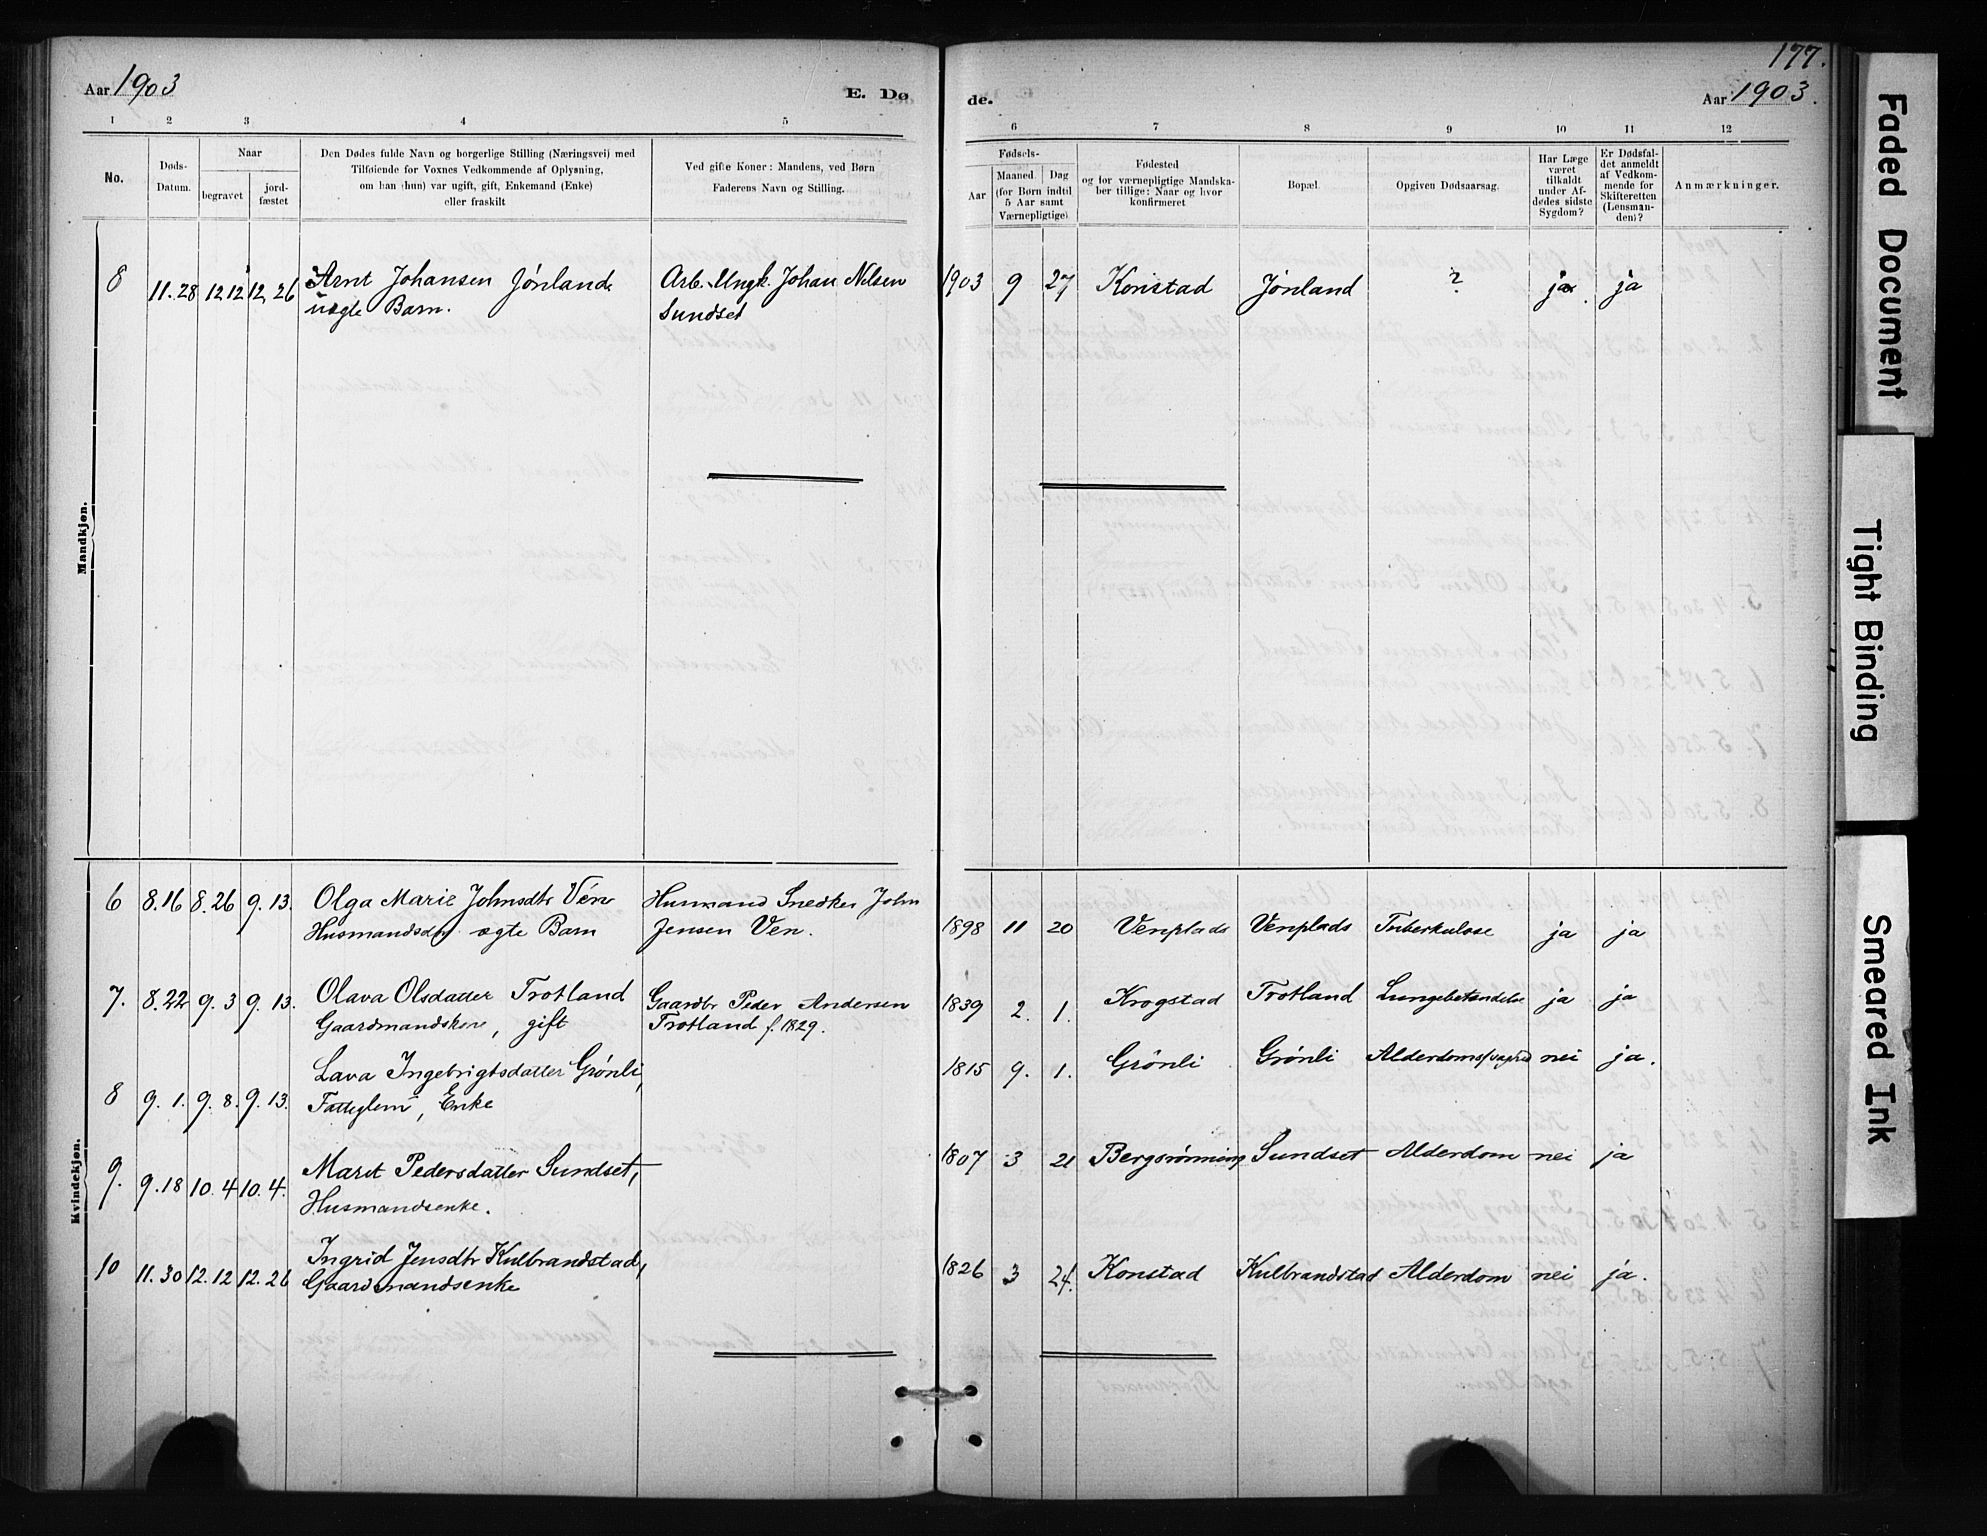 177.
Aar 1903
E. Dø
de.
Aar 1903.
1 2 3 4 5
6 7 8 9 10 11 12
No.
Døds-
Datum.
Naar
begravet
jord-
fæstet
Den Dødes fulde Navn og borgerlige Stilling (Næringsvei) med
Tilføiende for Voxnes Vedkommende af Oplysning,
om han (hun) var ugift, gift, Enkemand (Enke)
eller fraskilt
Ved gifte Koner: Mandens, ved Børn
Faderens Navn og Stilling.
Fødsels-
Aar
Maaned
Dag
(for Børn indtil
5 Aar samt
Værnepligtige)
Fødested
og for værnepligtige Mandska-
ber tillige: Naar og hvor
konfirmeret
Bopæl.
Opgiven Dødsaarsag.
Har Læge
været
tilkaldt
under Af-
dødes sidste
Sygdom?
Er Dødsfal-
det anmeldt
af Vedkom-
mende for
Skifteretten
(Lensman-
den)?
Anmærkninger.
Mandkjøn.
8 11.28 12 12 12, 26 Arnt Johansen Jønland, Arb. Ungk. Johan Nelsen 1903 9 27 Konstad Jønland ? ja. ja
uægte Barn. Sundset
Kvindekjøn.
6 8.16 8.26 9.13. Olga Marie Johnsdtr Vén Husmand Snedker John
Husmandsdtr. ægte Barn Jensen Ven. 1898 11 20 Venplads Venplads Tuberkulose ja ja
7. 8.22 9.3 9.13. Olava Olsdatter Trotland Gaardbr Peder Andersen 1839 2. 1. Krogstad Trotland Lungebetændelse ja ja
Gaardmandskone, gift Trotland f. 1829.
8 9.1. 9.8. 9.13. Lava Ingebrigtsdatter Grønli, 1815 9. 1. Grönli Grønli Alderdomssvaghed nei ja.
Fattiglem, Enke
9. 9.18 10.4 10.4. Marit Pedersdatter Sundset, 1807 3 21 Bergsrønning Sundset Alderdom nei ja
Husmandsenke.
10 11.30 12.12 12.26 Ingrid Jensdtr Kulbrandstad, 1826 3 24. Konstad Kulbrandstad Alderdom nei ja.
Gaardmandsenke
Faded Document
Tight Binding
Smeared Ink